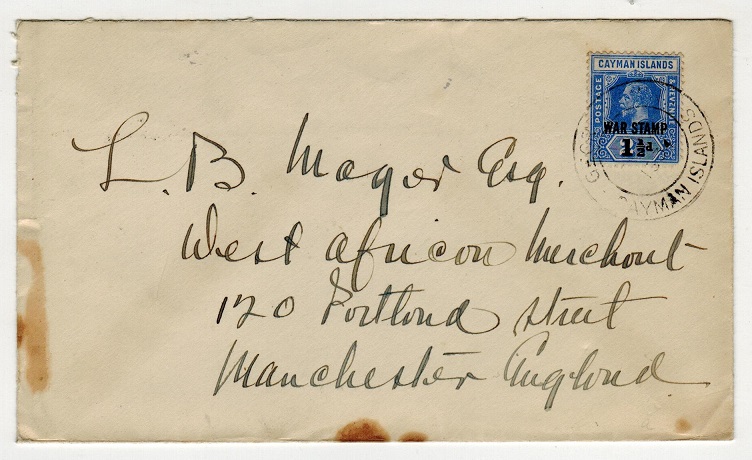 CAYMAN ISLANDS
POSTAGE & REVENUE
WAR STAMP
1½d
CAYMAN ISLANDS
L. B. Mayer Esq.
West African Merchant
120 Portland Street
Manchester England